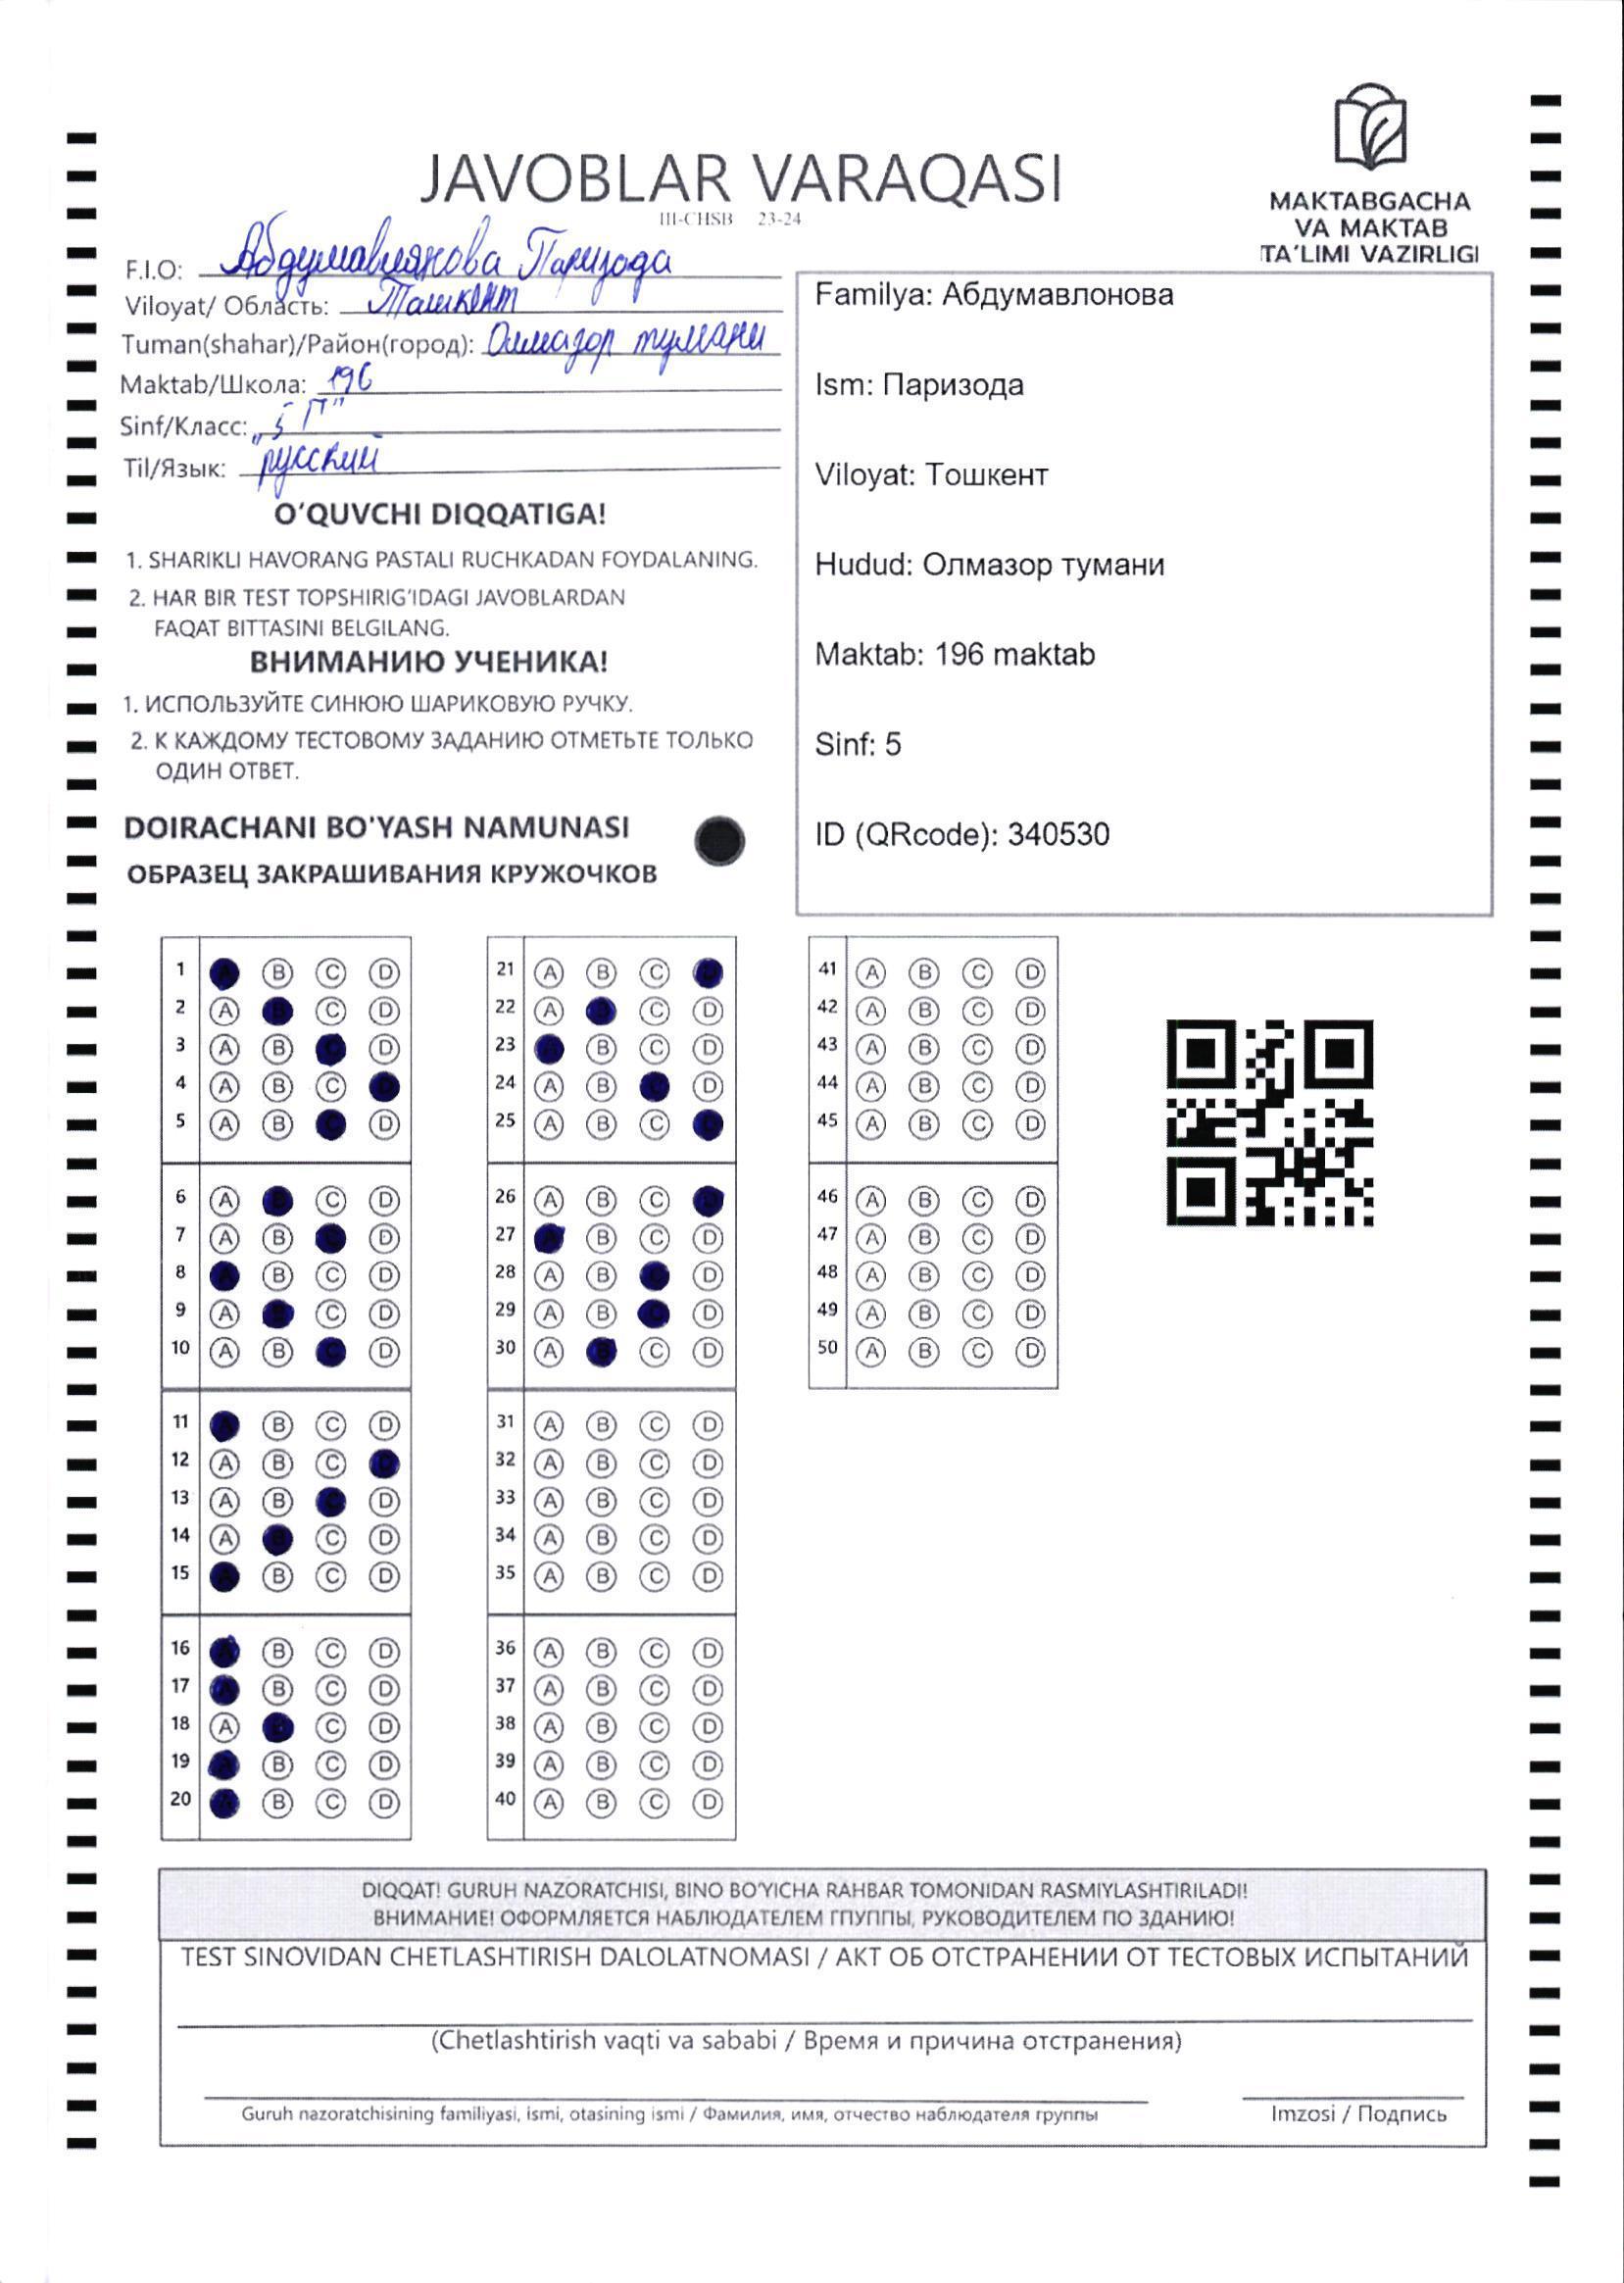 JAVOBLAR VARAQASI
III-CHSB 23-24
MAKTABGACHA
VA MAKTAB
TA'LIMI VAZIRLIGI
F.I.O: Абдумавлянова Паризода
Viloyat/ Область: Ташкент
Tuman(shahar)/Район(город): Олмазор тумани
Maktab/Школа: 196
Sinf/Класс: „5 П"
Til/Язык: русский
O‘QUVCHI DIQQATIGA!
1. SHARIKLI HAVORANG PASTALI RUCHKADAN FOYDALANING.
2. HAR BIR TEST TOPSHIRIG‘IDAGI JAVOBLARDAN
FAQAT BITTASINI BELGILANG.
ВНИМАНИЮ УЧЕНИКА!
1. ИСПОЛЬЗУЙТЕ СИНЮЮ ШАРИКОВУЮ РУЧКУ.
2. К КАЖДОМУ ТЕСТОВОМУ ЗАДАНИЮ ОТМЕТЬТЕ ТОЛЬКО
ОДИН ОТВЕТ.
DOIRACHANI BO'YASH NAMUNASI
ОБРАЗЕЦ ЗАКРАШИВАНИЯ КРУЖОЧКОВ
Familya: Абдумавлонова
Ism: Паризода
Viloyat: Тошкент
Hudud: Олмазор тумани
Maktab: 196 maktab
Sinf: 5
ID (QRcode): 340530
1 A B C D
2 A B C D
3 A B C D
4 A B C D
5 A B C D
6 A B C D
7 A B C D
8 A B C D
9 A B C D
10 A B C D
11 A B C D
12 A B C D
13 A B C D
14 A B C D
15 A B C D
16 A B C D
17 A B C D
18 A B C D
19 A B C D
20 A B C D
21 A B C D
22 A B C D
23 A B C D
24 A B C D
25 A B C D
26 A B C D
27 A B C D
28 A B C D
29 A B C D
30 A B C D
31 A B C D
32 A B C D
33 A B C D
34 A B C D
35 A B C D
36 A B C D
37 A B C D
38 A B C D
39 A B C D
40 A B C D
41 A B C D
42 A B C D
43 A B C D
44 A B C D
45 A B C D
46 A B C D
47 A B C D
48 A B C D
49 A B C D
50 A B C D
DIQQAT! GURUH NAZORATCHISI, BINO BO‘YICHA RAHBAR TOMONIDAN RASMIYLASHTIRILADI!
ВНИМАНИЕ! ОФОРМЛЯЕТСЯ НАБЛЮДАТЕЛЕМ ГПУППЫ, РУКОВОДИТЕЛЕМ ПО ЗДАНИЮ!
TEST SINOVIDAN CHETLASHTIRISH DALOLATNOMASI / АКТ ОБ ОТСТРАНЕНИИ ОТ ТЕСТОВЫХ ИСПЫТАНИЙ
(Chetlashtirish vaqti va sababi / Время и причина отстранения)
Guruh nazoratchisining familiyasi, ismi, otasining ismi / Фамилия, имя, отчество наблюдателя группы
Imzosi / Подпись